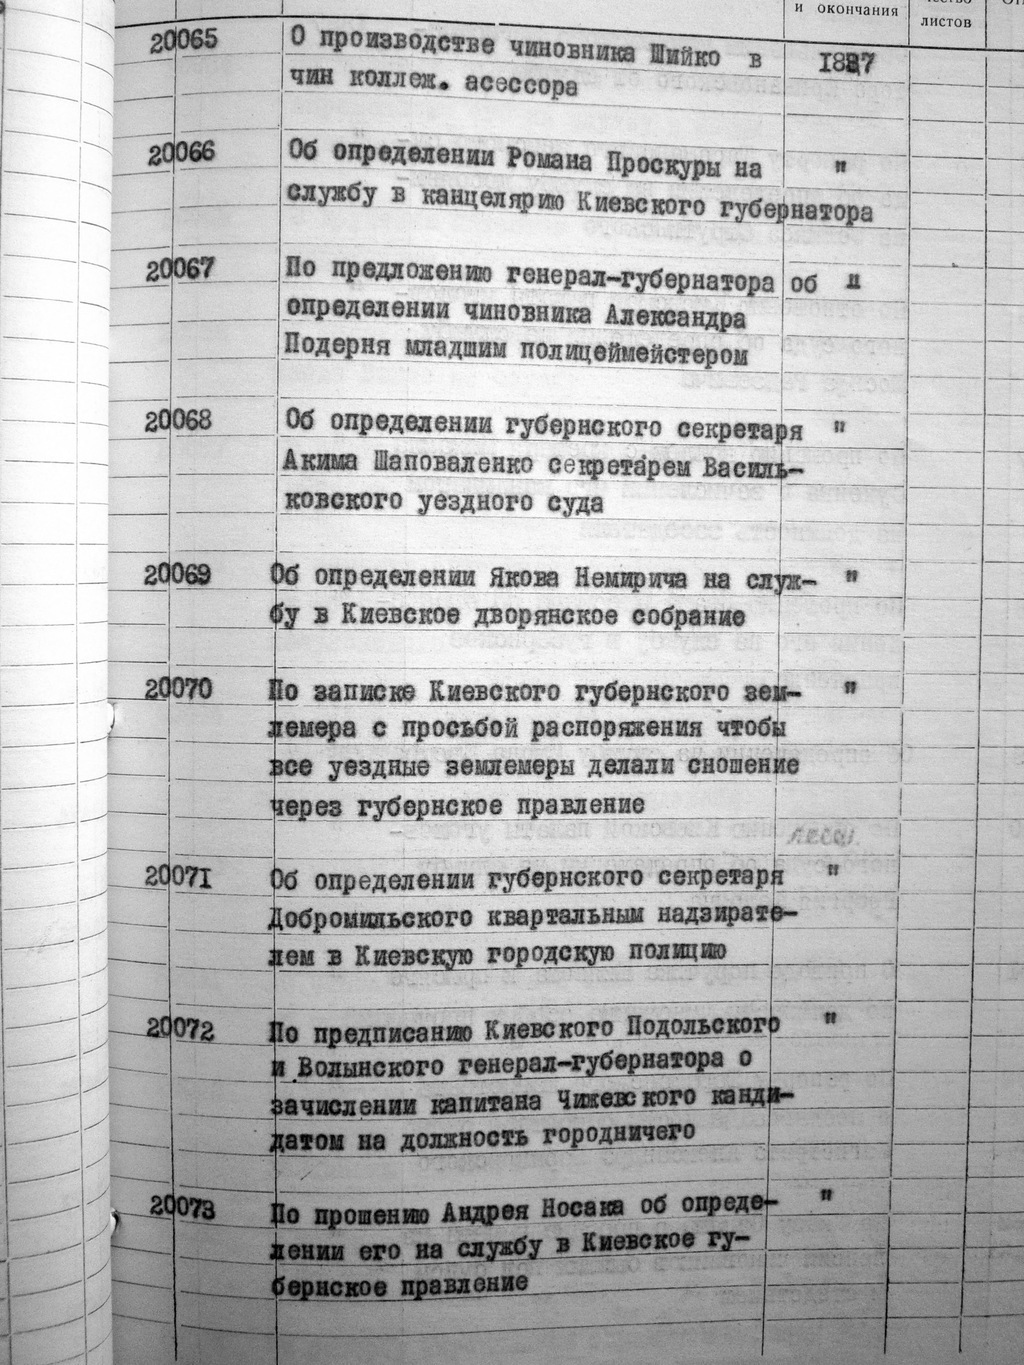 и окончания
листов
20065 О производстве чиновника Шийко в 1837
чин коллеж. асессора
20066 Об определении Романа Проскуры на "
службу в канцелярию Киевского губернатора
20067 По предложению генерал-губернатора об "
определении чиновника Александра
Подерня младшим полицеймейстером
20068 Об определении губернского секретаря "
Акима Шаповаленко секретарем Василь-
ковского уездного суда
20069 Об определении Якова Немирича на служ- "
бу в Киевское дворянское собрание
20070 По записке Киевского губернского зем- "
лемера с просьбой распоряжения чтобы
все уездные землемеры делали сношение
через губернское правление
20071 Об определении губернского секретаря "
Добромильского квартальным надзирате-
лем в Киевскую городскую полицию
20072 По предписанию Киевского Подольского "
и Волынского генерал-губернатора о
зачислении капитана Чижевского канди-
датом на должность городничего
20073 По прошению Андрея Носака об опреде- "
лении его на службу в Киевское гу-
бернское правление